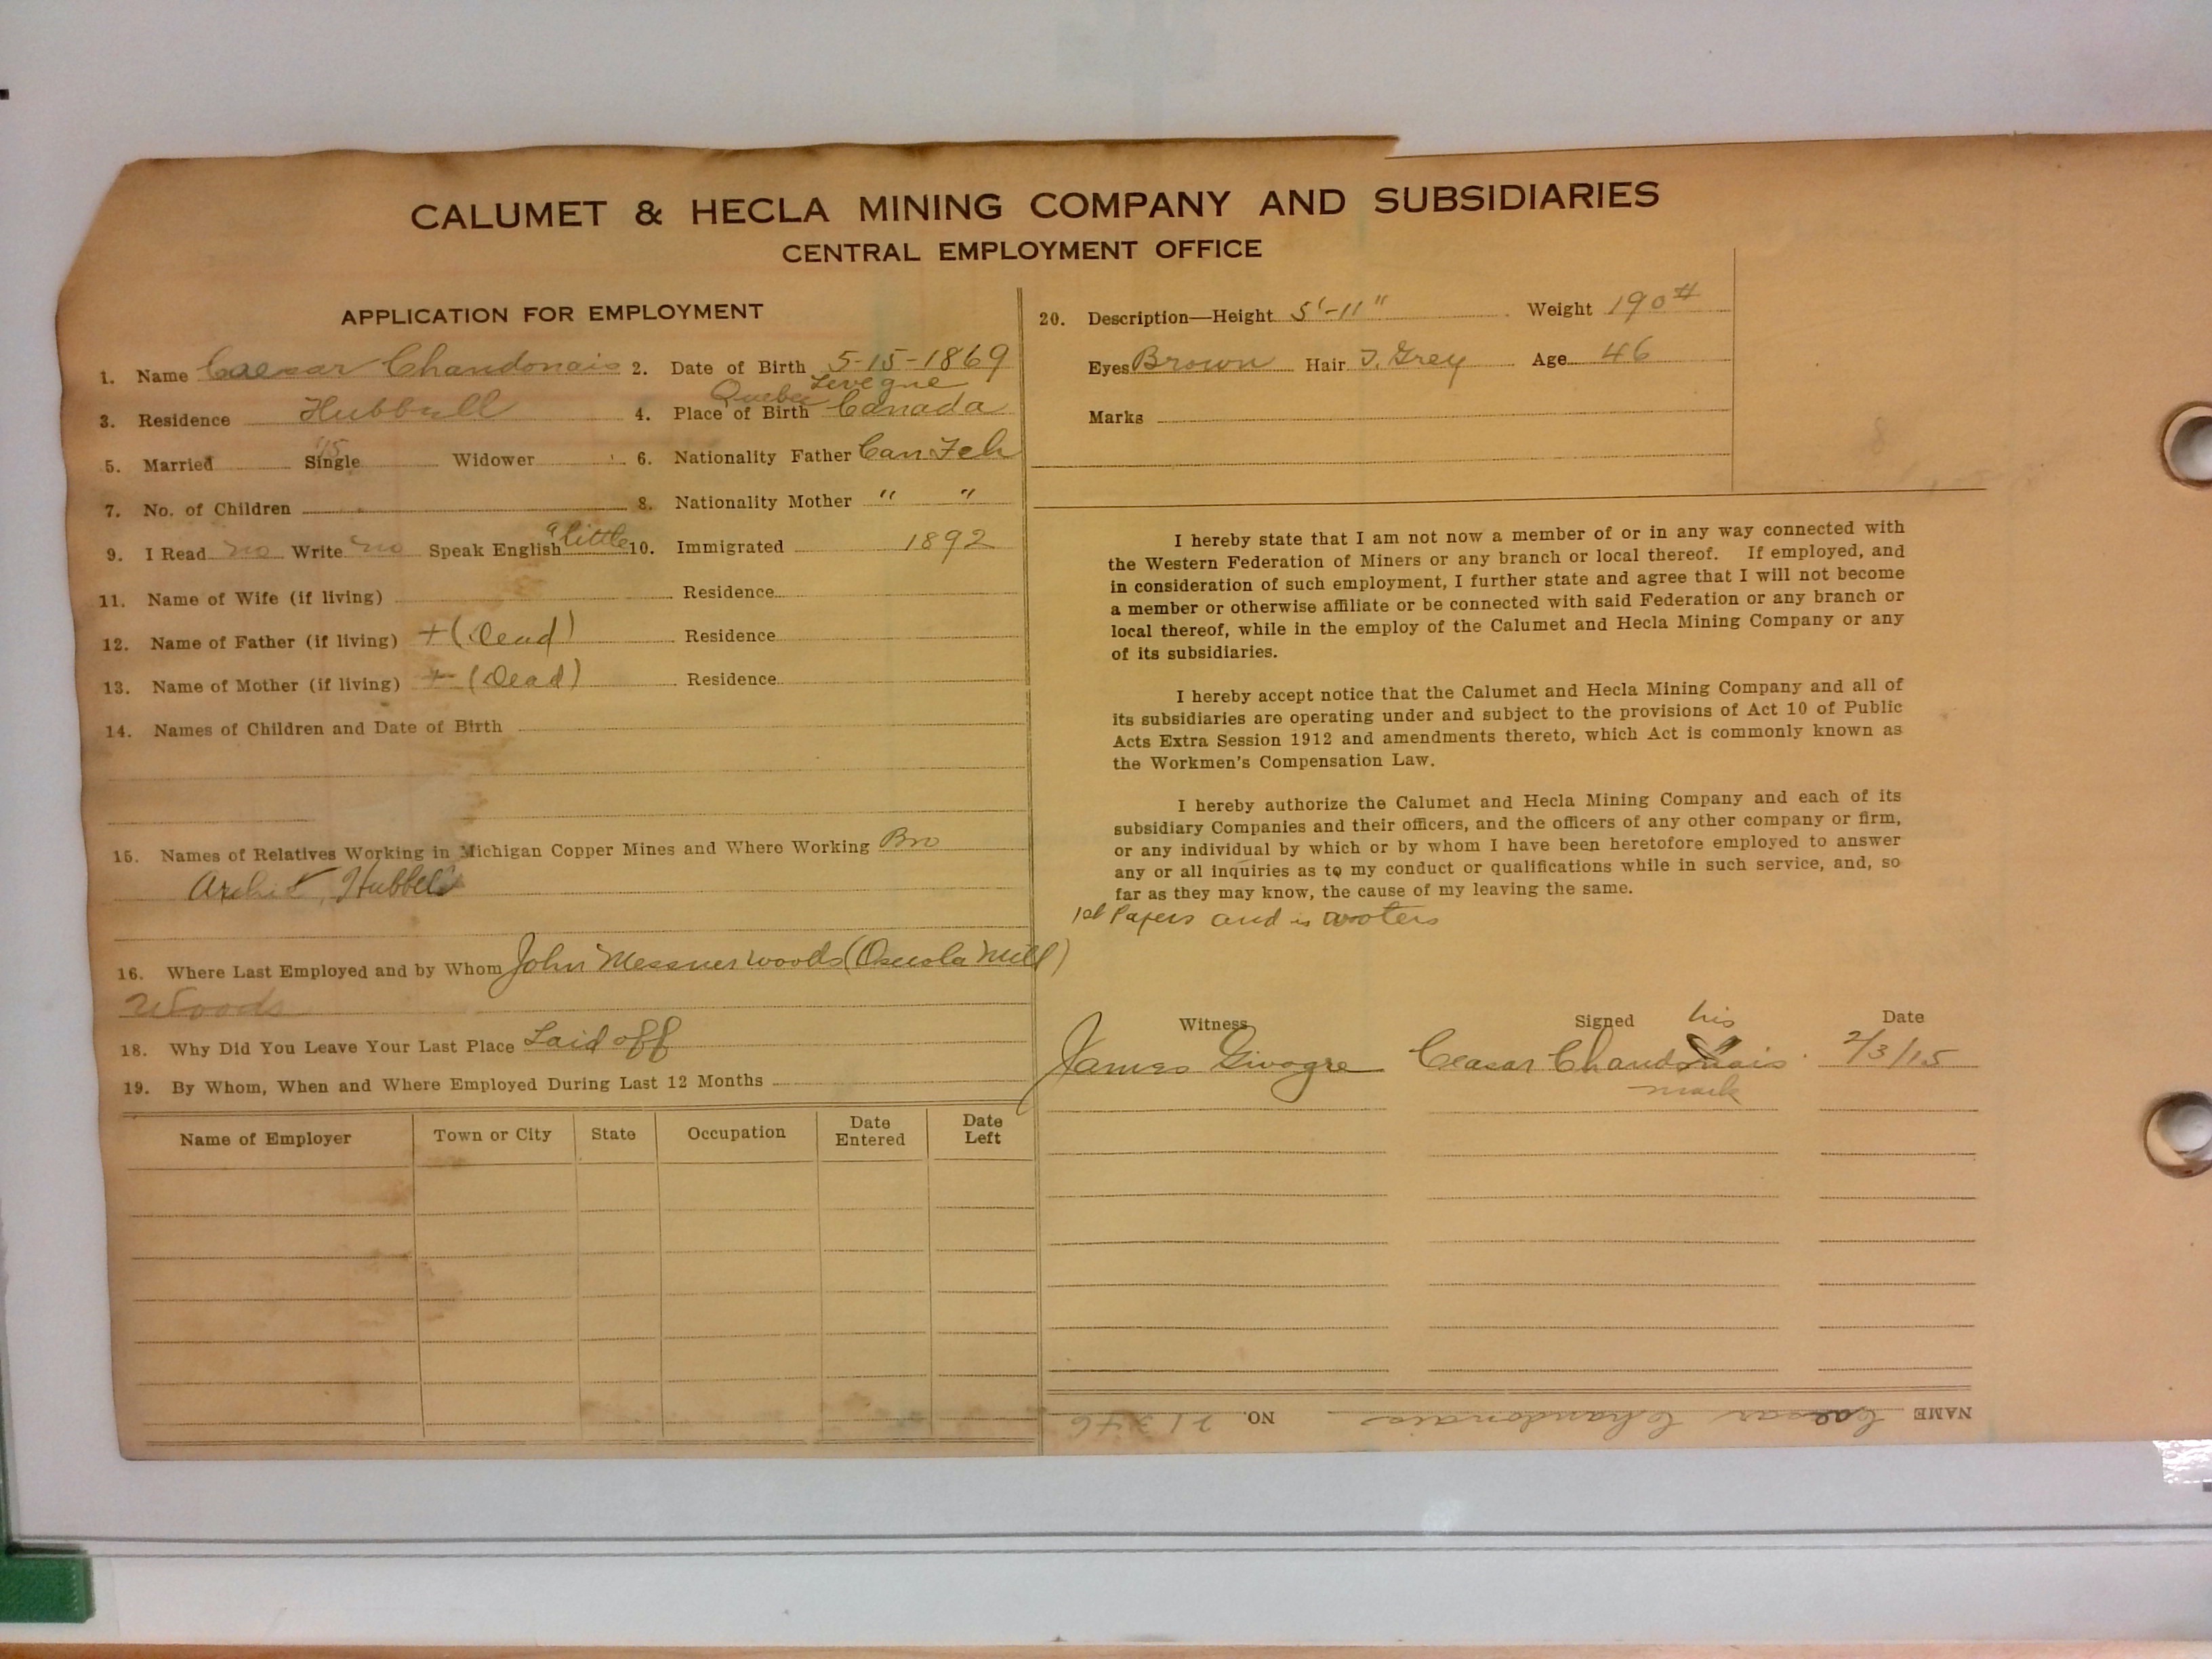 CALUMET & HECLA MINING COMPANY AND SUBSIDIARIES
CENTRAL EMPLOYMENT OFFICE
APPLICATION FOR EMPLOYMENT
1. Name Caesar Chandonais 2. Date of Birth 5-15-1869
Quebec
3. Residence Hubbell 4. Place of Birth Canada
5. Married Single '15 Widower 6. Nationality Father Can Fch
7. No. of Children 8. Nationality Mother " "
9. I Read no Write no Speak English a little 10. Immigrated 1892
11. Name of Wife (if living) Residence
12. Name of Father (if living) + (Dead) Residence
13. Name of Mother (if living) + (Dead) Residence
14. Names of Children and Date of Birth
15. Names of Relatives Working in Michigan Copper Mines and Where Working Bro
Hubbell
16. Where Last Employed and by Whom John Messner woods (Osceola Mill)
Woods
18. Why Did You Leave Your Last Place Laid off
19. By Whom, When and Where Employed During Last 12 Months
Name of Employer Town or City State Occupation Date Entered Date Left
20. Description—Height 5'-11" Weight 190#
Eyes Brown Hair I. Grey Age 46
Marks
I hereby state that I am not now a member of or in any way connected with
the Western Federation of Miners or any branch or local thereof. If employed, and
in consideration of such employment, I further state and agree that I will not become
a member or otherwise affiliate or be connected with said Federation or any branch or
local thereof, while in the employ of the Calumet and Hecla Mining Company or any
of its subsidiaries.
I hereby accept notice that the Calumet and Hecla Mining Company and all of
its subsidiaries are operating under and subject to the provisions of Act 10 of Public
Acts Extra Session 1912 and amendments thereto, which Act is commonly known as
the Workmen's Compensation Law.
I hereby authorize the Calumet and Hecla Mining Company and each of its
subsidiary Companies and their officers, and the officers of any other company or firm,
or any individual by which or by whom I have been heretofore employed to answer
any or all inquiries as to my conduct or qualifications while in such service, and, so
far as they may know, the cause of my leaving the same.
1st Papers and is
Witness Signed his Date
James Ceasar Chandonais 2/3/15
mark
NAME Caesar Chandonais NO. 21346